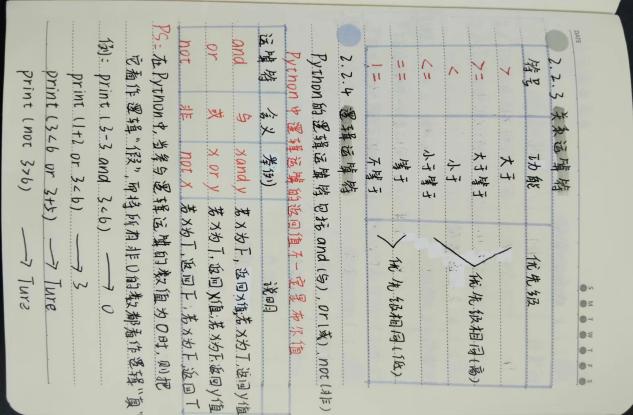 DATE
S M T W T F S
2.2.3 关系运算符
符号 功能 优先级
> 大于
>= 大于等于
< 小于
<= 小于等于
优先级相同(高)
== 等于
!= 不等于
优先级相同(低)
2.2.4 逻辑运算符
Python的逻辑运算符包括and(与), or(或), not(非)
Python中逻辑运算的返回值不一定是布尔值
运算符 含义 举例 说明
and 与 x and y 若x为F,返回x值;若x为T,返回y值
or 或 x or y 若x为T,返回x值;若x为F,返回y值
not 非 not x 若x为T,返回F;若x为F,返回T
PS:在Python中,当参与逻辑运算的数值为0时,则把
它看作逻辑“假”,而将所有非0的数都看作逻辑“真”
例: print (3-3 and 3<6) → 0
print (1+2 or 3<6) → 3
print (3<6 or 3+5) → Ture
print (not 3>6) → Ture